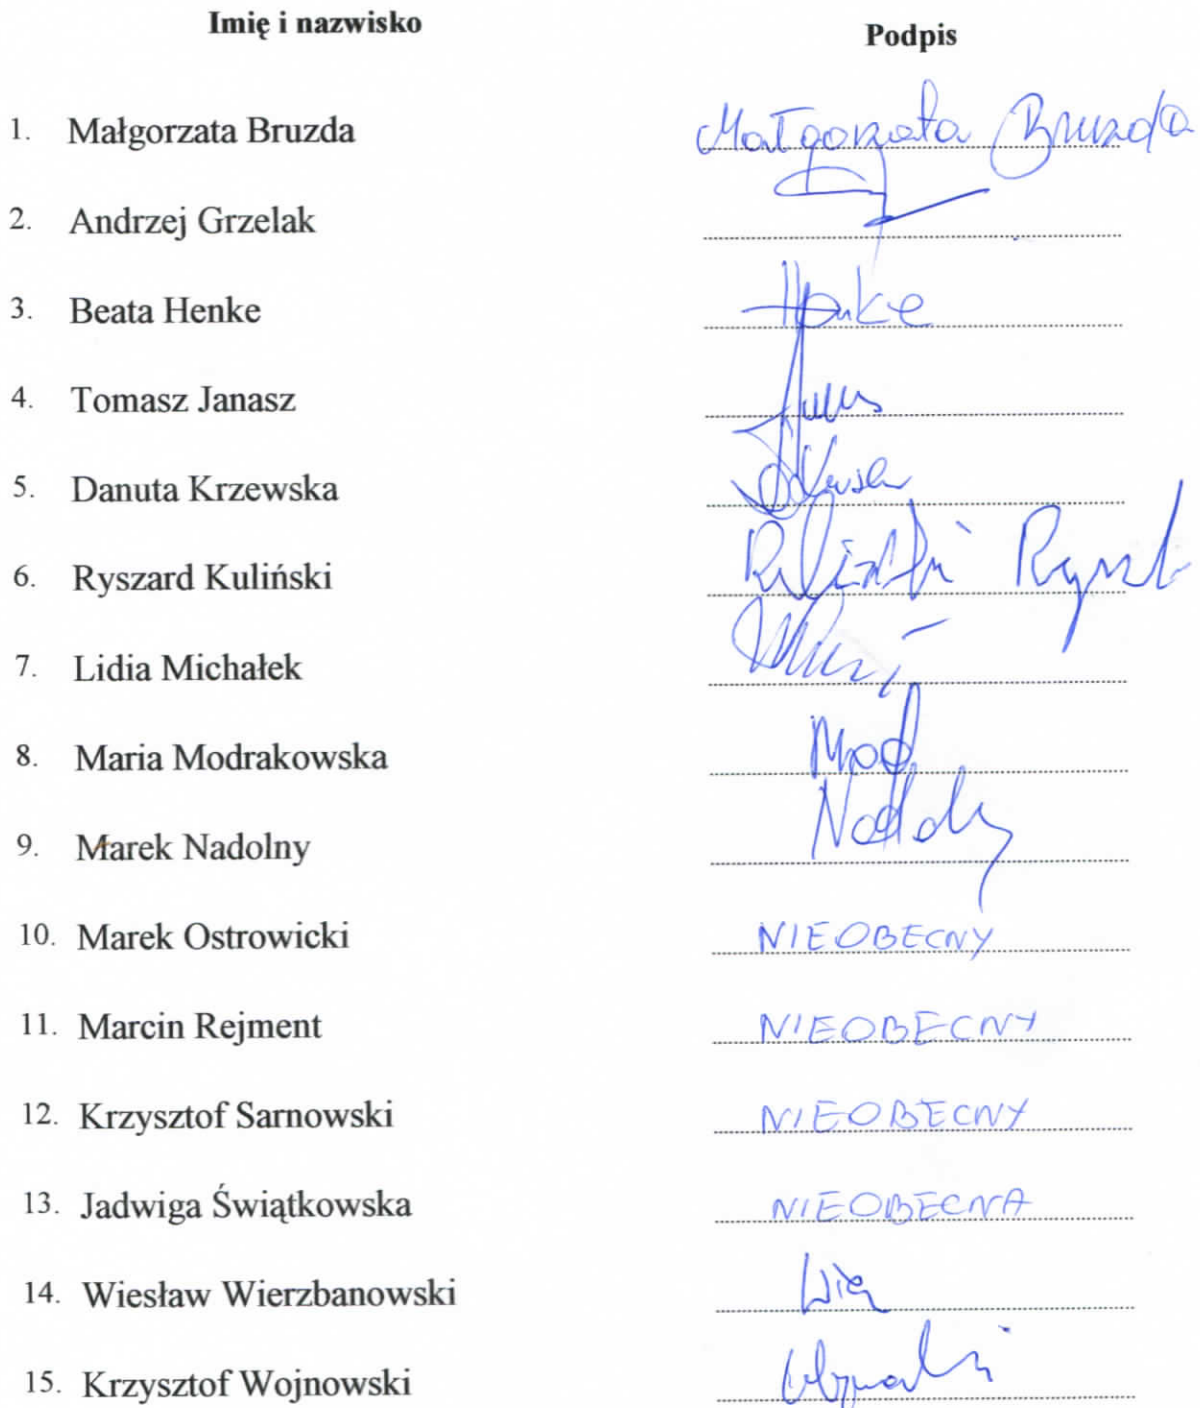 Imię i nazwisko Podpis
1. Małgorzata Bruzda Małgorzata Bruzda
2. Andrzej Grzelak
3. Beata Henke Henke
4. Tomasz Janasz
5. Danuta Krzewska
6. Ryszard Kuliński
7. Lidia Michałek
8. Maria Modrakowska Mod
9. Marek Nadolny
10. Marek Ostrowicki NIEOBECNY
11. Marcin Rejment NIEOBECNY
12. Krzysztof Sarnowski NIEOBECNY
13. Jadwiga Świątkowska NIEOBECNA
14. Wiesław Wierzbanowski
15. Krzysztof Wojnowski